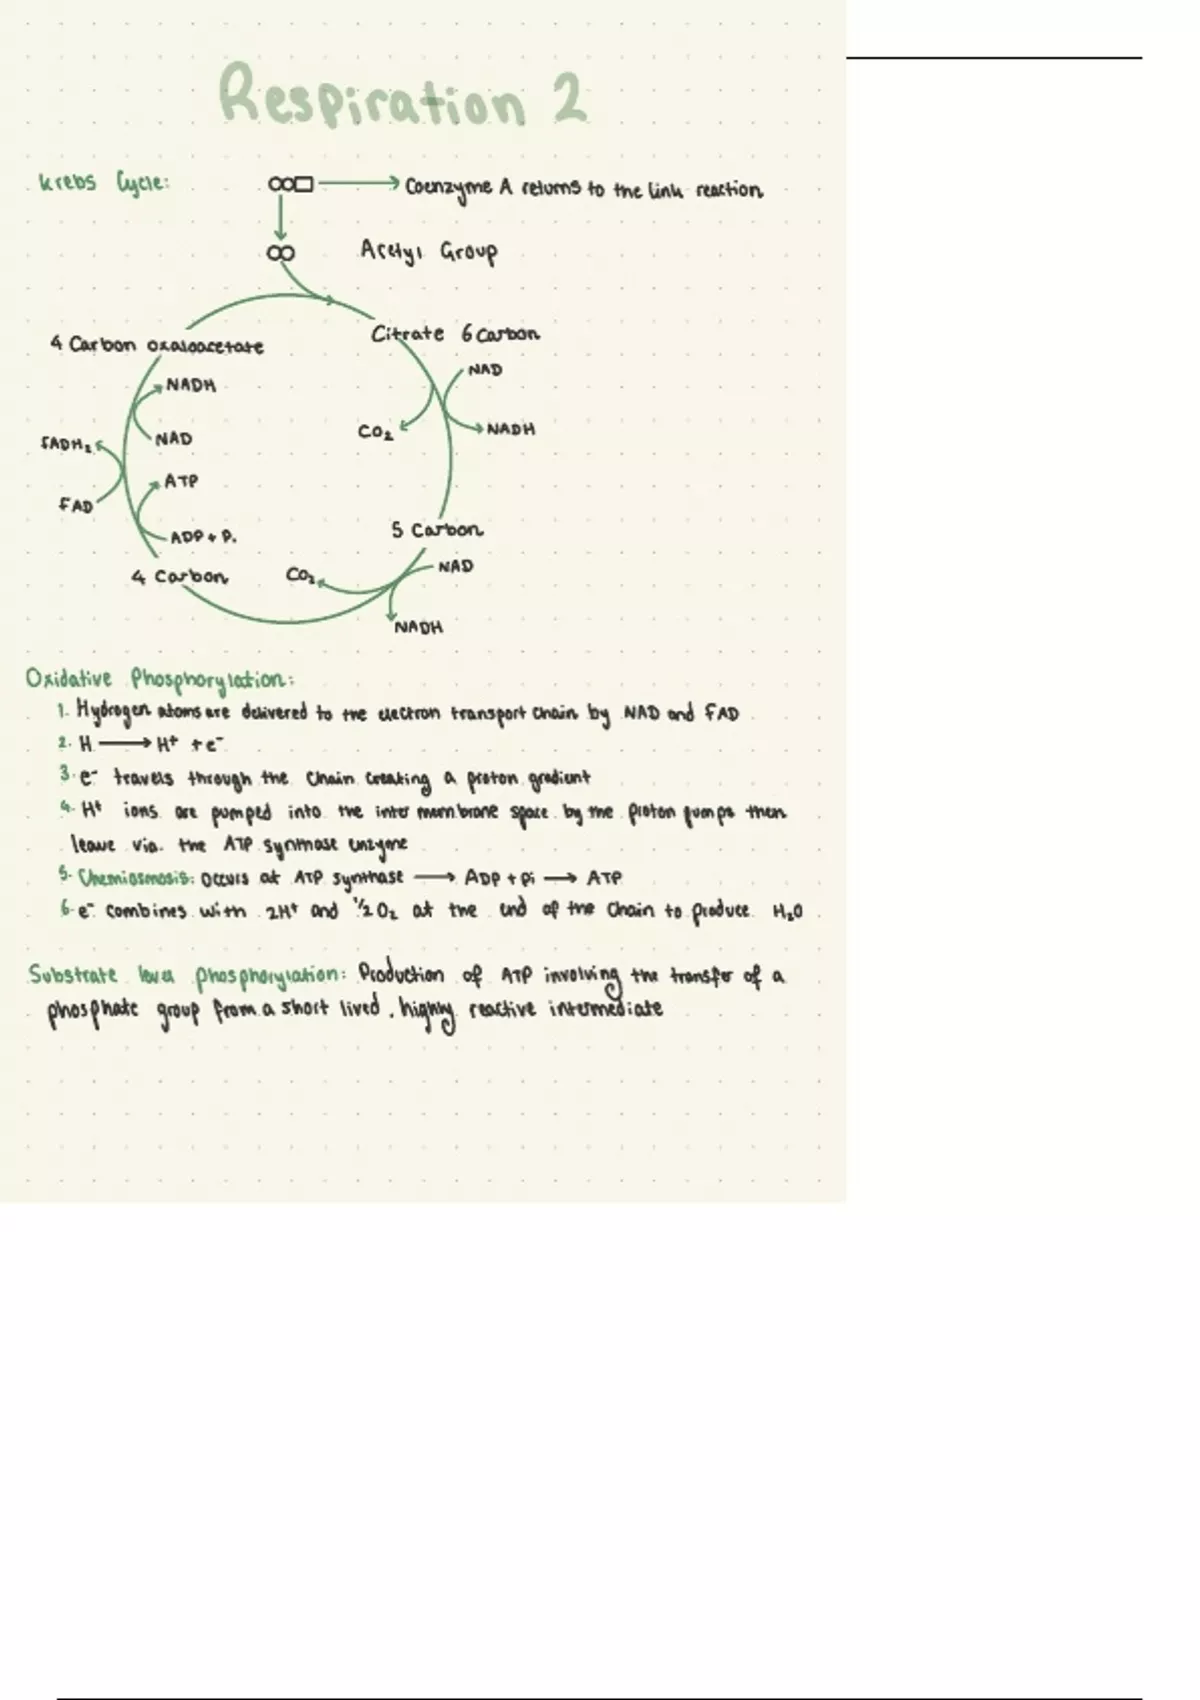 Respiration 2
Krebs Cycle:
Coenzyme A returns to the link reaction
Acetyl Group
Citrate 6 Carbon
4 Carbon oxaloacetate
NAD
NADH
CO2
NADH
NAD
FADH2
FAD
ATP
ADP + Pi
5 Carbon
NAD
CO2
4 Carbon
NADH
Oxidative Phosphorylation:
1. Hydrogen atoms are delivered to the electron transport chain by NAD and FAD
2. H ⟶ H+ + e-
3. e- travels through the chain creating a proton gradient
4. H+ ions are pumped into the inter membrane space by the proton pumps then
leave via the ATP synthase enzyme
5. Chemiosmosis: occurs at ATP synthase ⟶ ADP + Pi ⟶ ATP
6. e- combines with 2H+ and 1/2 O2 at the end of the chain to produce H2O
Substrate level phosphorylation: Production of ATP involving the transfer of a
phosphate group from a short lived, highly reactive intermediate